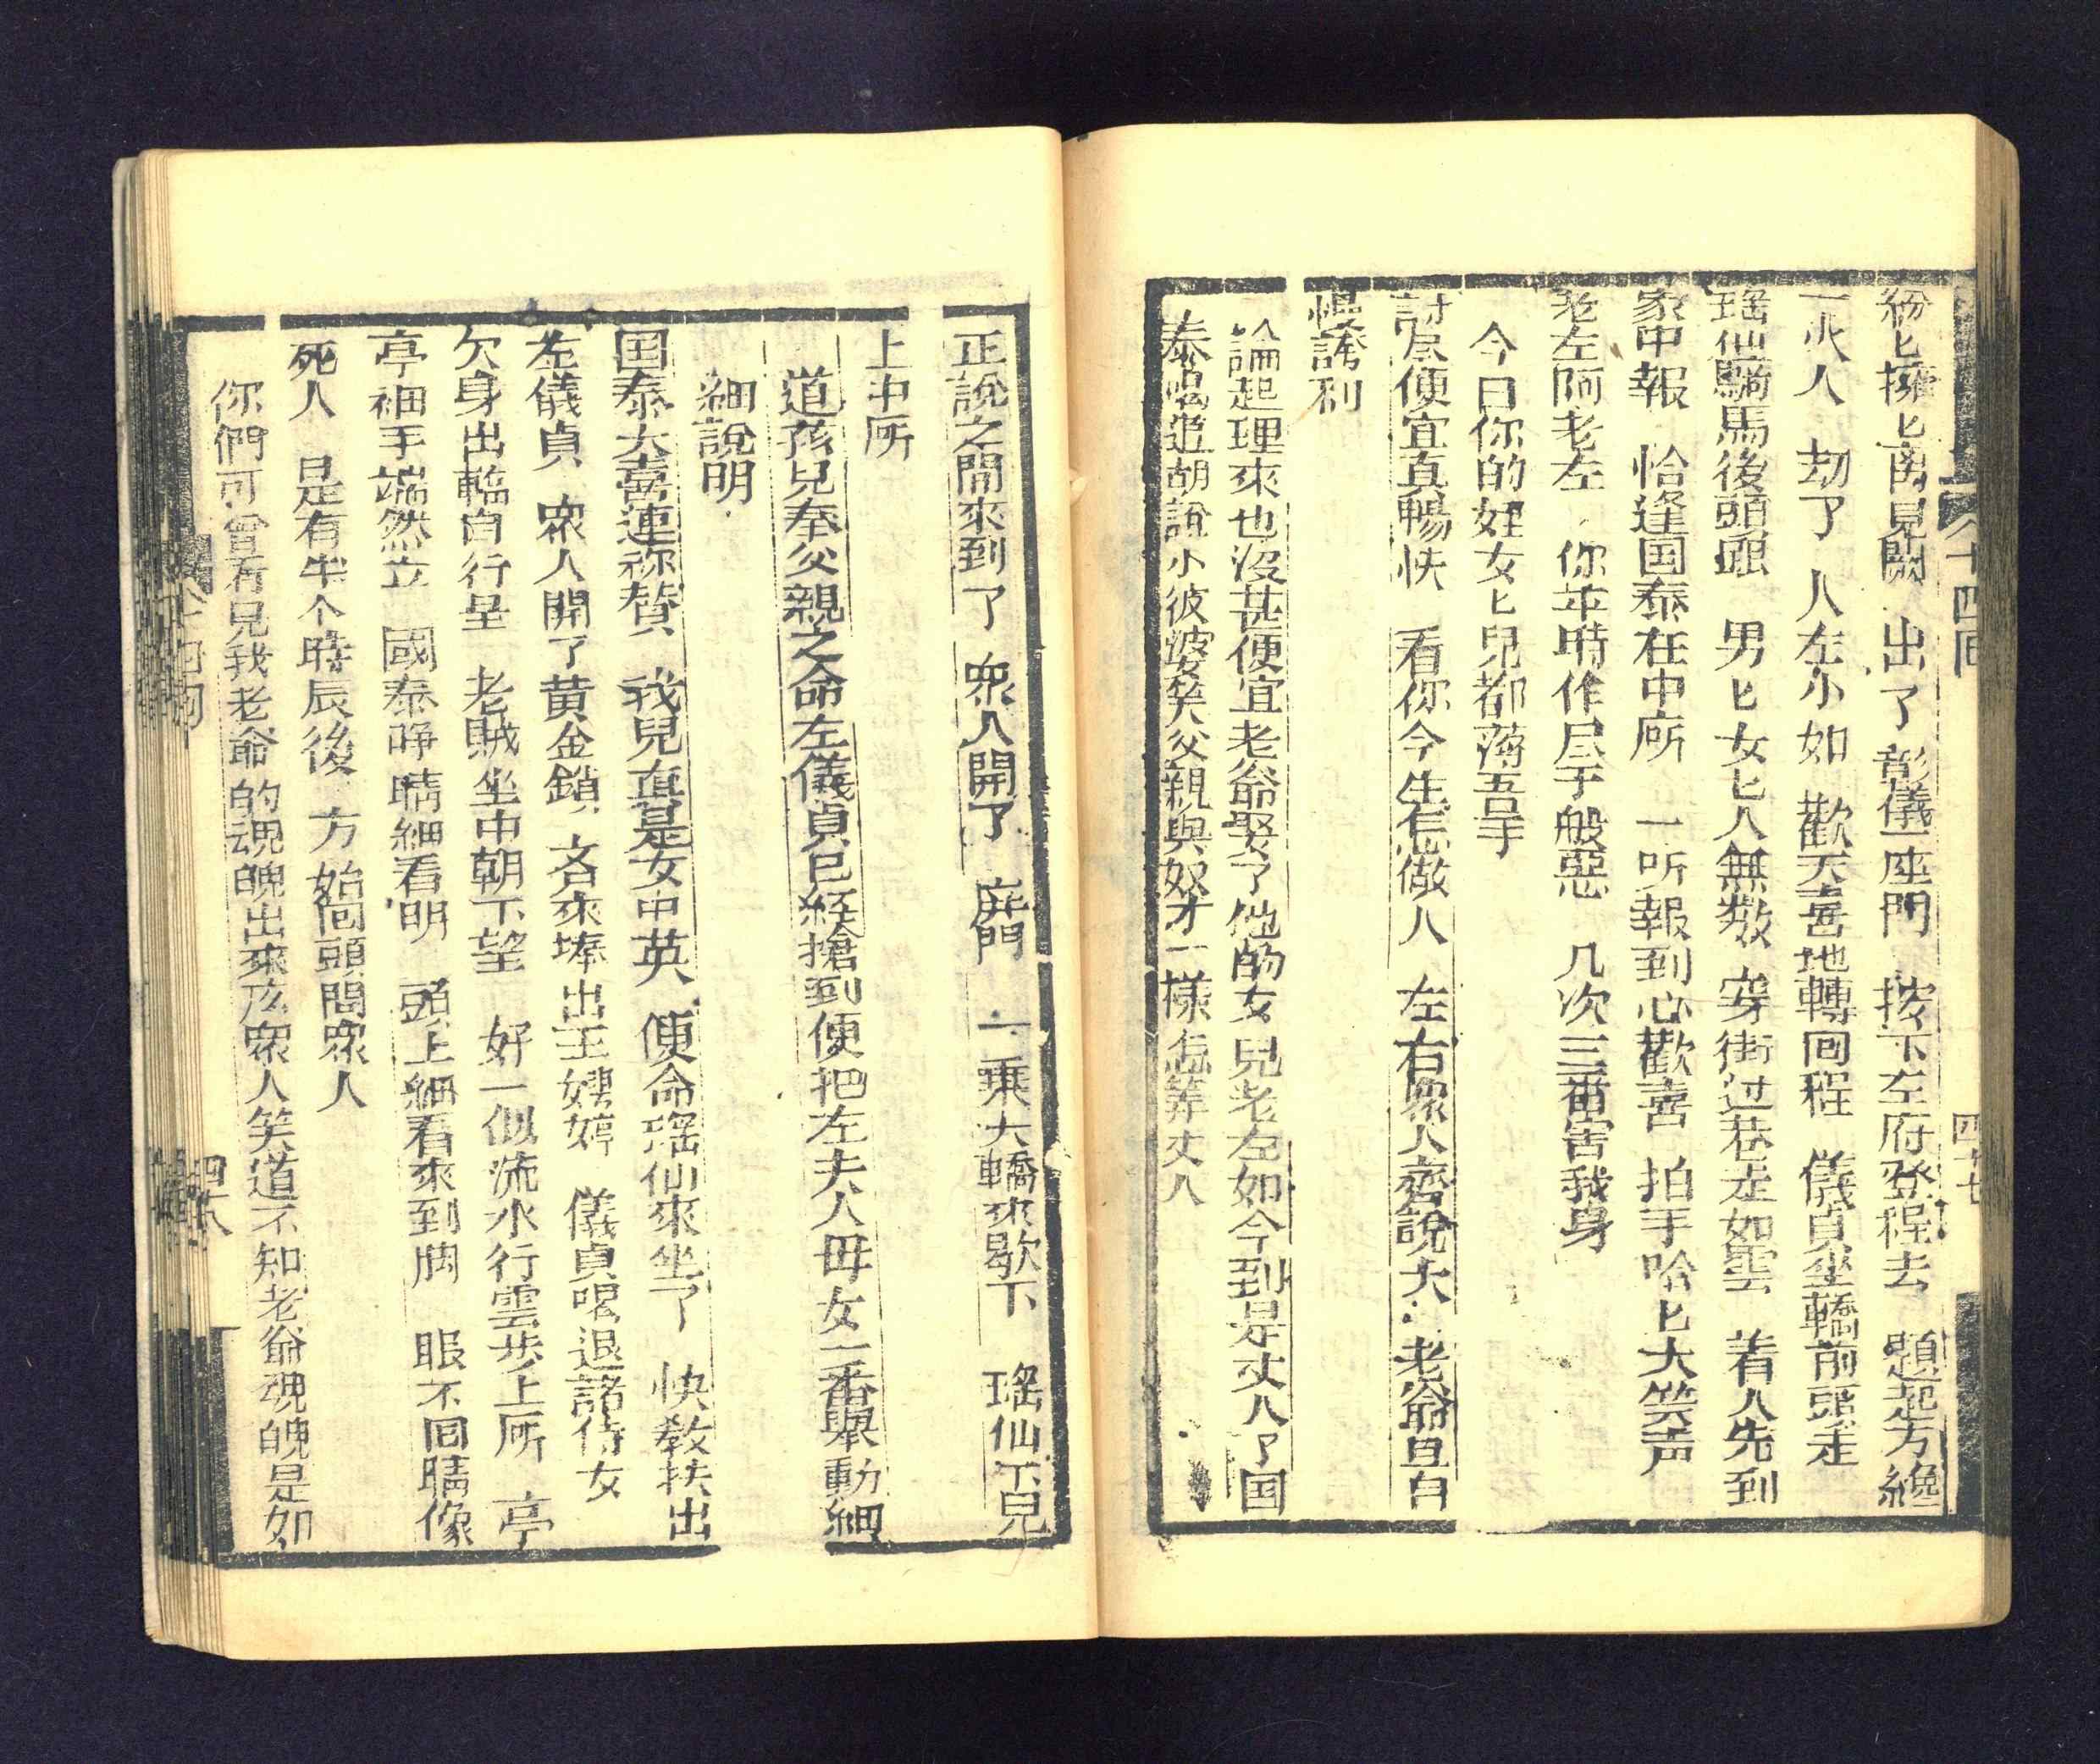 十四回 四十七
紛匕擁匕齊見闕 出了彰儀一座門 按下左府登程去 題起方纔
一火人 刼了人左小如 歡天喜地轉回程 儀貞坐轎前頭走
瑶仙騎馬後頭跟 男匕女匕人無数 穿街过巷走如雲 着人先到
家中報 恰逢国泰在中廳 一听報到心歡喜 拍手哈匕大笑声
老左阿老左 你平時作尽千般惡 几次三番害我身
今日你的姪女匕兒都落吾手
討尽便宜真暢快 看你今生怎做人 左右衆人齊說大老爺且自
慢誇利
論起理來也沒甚便宜老爺娶了他的女兒老左如今到是丈人了国
泰喝道胡說小彼婆算父親與奴才一樣怎算丈人
正說之間來到了 衆人開了 門 一乘大轎來歇下 瑶仙下見
上中所
道孩兒奉父親之命左儀貞已経搶到便把左夫人毋女一番舉動細
細說明
国泰大喜連称賛 我兒直是女中英 便命瑶仙來坐了 快教扶出
左儀貞 衆人開了黄金鎖 齐來捧出王娉婷 儀貞喝退諸侍女
欠身出轎自行呈 老賊坐中朝下望 好一似流水行雲步上所 亭
亭袖手端然立 國泰睁睛細看明 頭上細看來到脚 眼不回睛像
死人 是有半个時辰後 方始回頭問衆人
你們可曾看見我老爺的魂魄出來広衆人笑道不知老爺魂魄是如
十四回 四十八